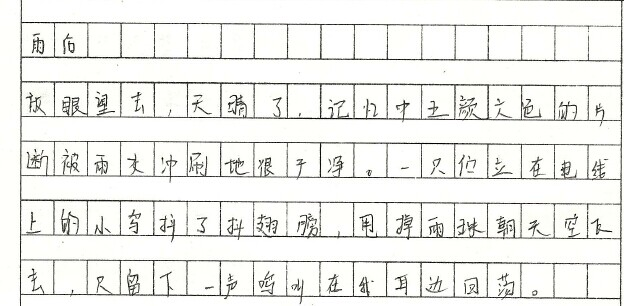 雨后
放眼望去，天晴了，记忆中五颜六色的片
断被雨水冲刷地很干净。一只伫立在电线
上的小鸟抖了抖翅膀，甩掉雨珠朝天空飞
去，只留下一声鸣叫在我耳边回荡。